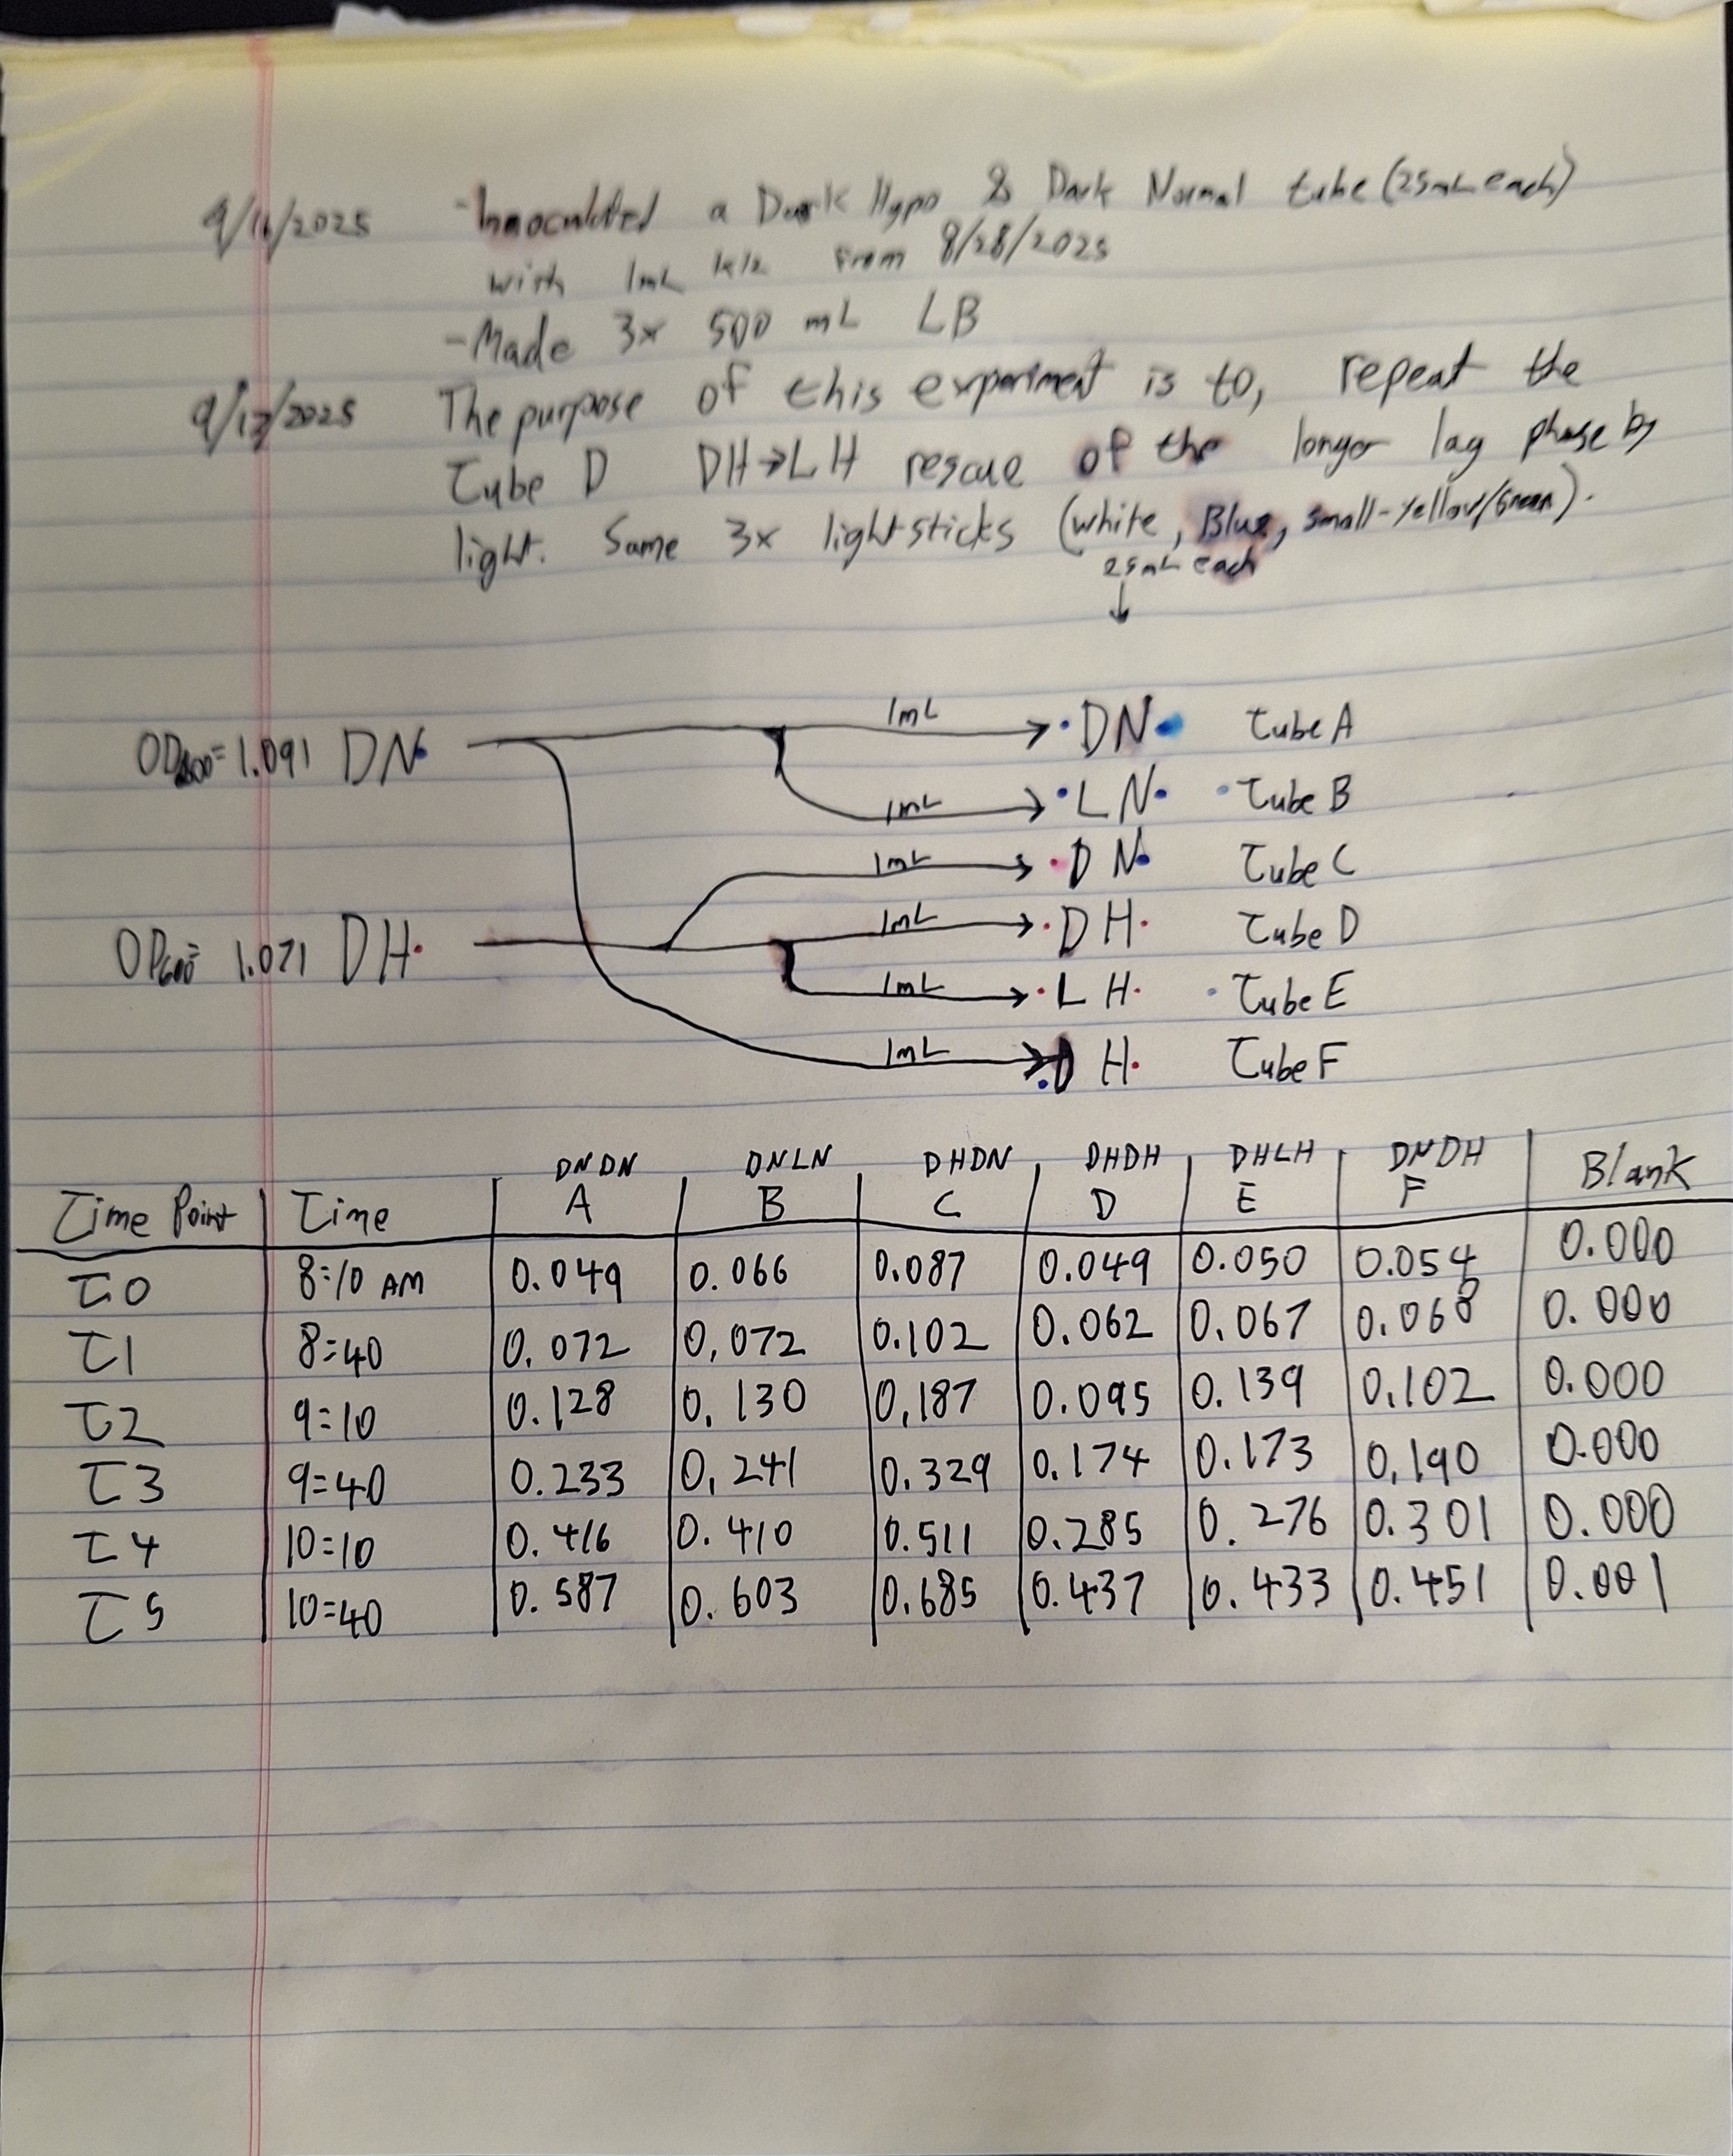 9/16/2025 -Innoculated a Dark Hypo & Dark Normal tube (25mL each)
with 1mL from 8/28/2025
-Made 3x 500 mL LB
9/17/2025 The purpose of this experiment is to, repeat the
Tube D DH→LH rescue of the longer lag phase by
light. Same 3x lightsticks (white, Blue, small-yellow/Green).
25mL each
↓
OD600= 1.091 DN 1mL → DN Tube A
1mL → LN Tube B
1mL → DN Tube C
OD600= 1.071 DH 1mL → DH Tube D
1mL → LH Tube E
1mL → DH Tube F
DNDN DNLN DHDN DHDH DHLH DNDH
Time Point Time A B C D E F Blank
T0 8:10 AM 0.049 0.066 0.087 0.049 0.050 0.054 0.000
T1 8:40 0.072 0.072 0.102 0.062 0.067 0.068 0.000
T2 9:10 0.128 0.130 0.187 0.095 0.139 0.102 0.000
T3 9:40 0.233 0.241 0.329 0.174 0.173 0.190 0.000
T4 10:10 0.416 0.410 0.511 0.285 0.276 0.301 0.000
T5 10:40 0.587 0.603 0.685 0.437 0.433 0.451 0.001